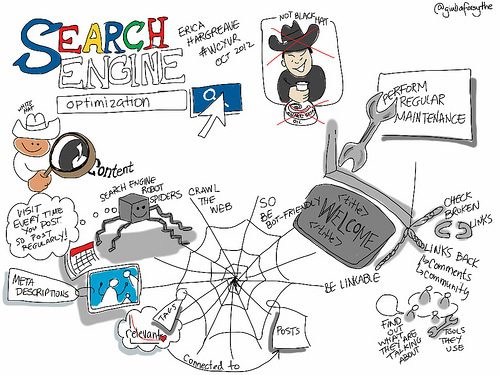 @giuliaforsythe
SEARCH
ENGINE
optimization
ERICA
HARGREAVE
#WCYVR
OCT 2012
NOT BLACK HAT
OIL
PERFORM
REGULAR
MAINTENANCE
WHITE
HAT
Content
VISIT
EVERY TIME
YOU POST
SO POST
REGULARLY!
SEARCH ENGINE
ROBOT
SPIDERS
CRAWL
THE
WEB
SO
BE
BOT-FRIENDLY
<title>
WELCOME
</title>
CHECK
BROKEN
LINKS
LINKS BACK
comments
community
BE LINKABLE
META
DESCRIPTIONS
TAGS
relevant
POSTS
connected to
FIND
OUT
WHAT
THEY ARE
TALKING
ABOUT
TOOLS
THEY
USE